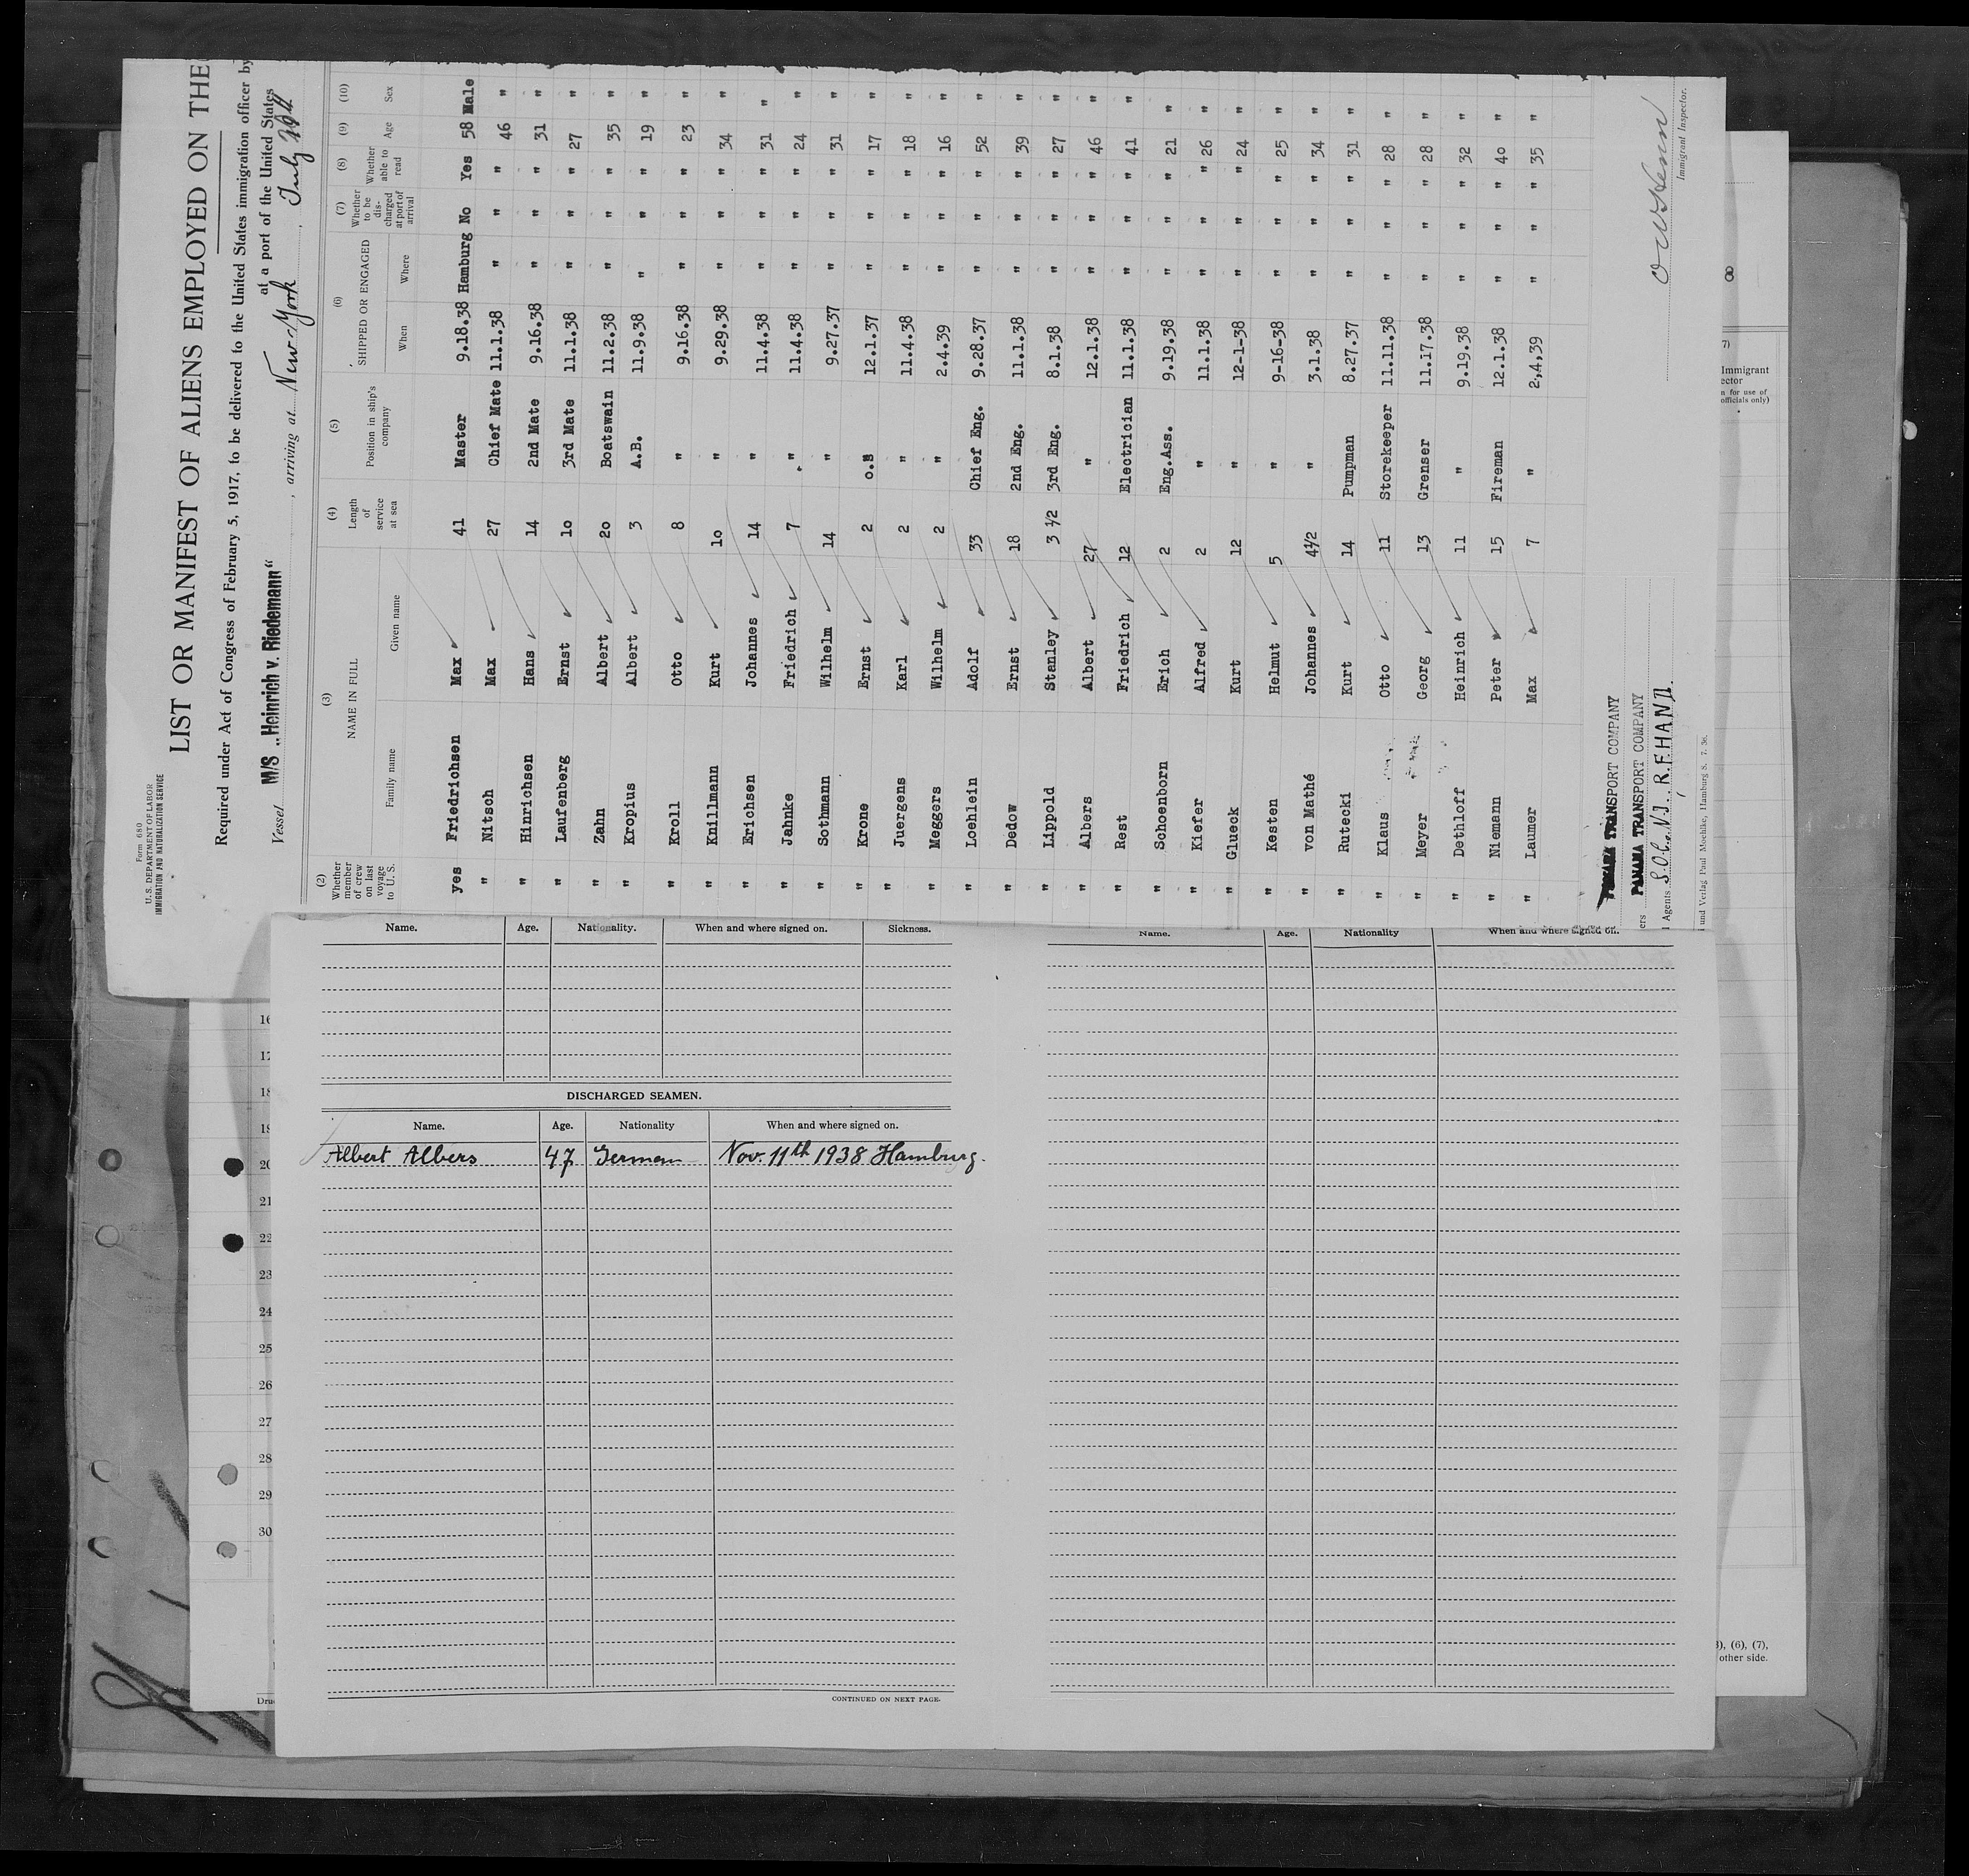 Form 680
U.S. DEPARTMENT OF LABOR
IMMIGRATION AND NATURALIZATION SERVICE
LIST OR MANIFEST OF ALIENS EMPLOYED ON THE
Required under Act of Congress of February 5, 1917, to be delivered to the United States immigration officer by
at a port of the United States
Vessel M/S „Heinrich v. Riedemann“, arriving at New-York, July
(2) (3) (4) (5) (6) (7) (8) (9) (10)
Whether member of crew on last voyage to U. S. NAME IN FULL Length of service at sea Position in ship's company SHIPPED OR ENGAGED Whether to be discharged at port of arrival Whether able to read Age Sex
Family name Given name When Where
yes Friedrichsen Max 41 Master 9.18.38 Hamburg No Yes 58 Male
" Nitsch Max 27 Chief Mate 11.1.38 " " " 46 "
" Hinrichsen Hans 14 2nd Mate 9.16.38 " " " 31 "
" Laufenberg Ernst 10 3rd Mate 11.1.38 " " " 27 "
" Zahn Albert 20 Boatswain 11.2.38 " " " 35 "
" Kropius Albert 3 A.B. 11.9.38 " " " 19 "
" Kroll Otto 8 " 9.16.38 " " " 23 "
" Knillmann Kurt 10 " 9.29.38 " " " 34 "
" Erichsen Johannes 14 " 11.4.38 " " " 31 "
" Jahnke Friedrich 7 " 11.4.38 " " " 24 "
" Sothmann Wilhelm 14 " 9.27.37 " " " 31 "
" Krone Ernst 2 O.S 12.1.37 " " " 17 "
" Juergens Karl 2 " 11.4.38 " " " 18 "
" Meggers Wilhelm 2 " 2.4.39 " " " 16 "
" Loehlein Adolf 33 Chief Eng. 9.28.37 " " " 52 "
" Dedow Ernst 18 2nd Eng. 11.1.38 " " " 39 "
" Lippold Stanley 3 1/2 3rd Eng. 8.1.38 " " " 27 "
" Albers Albert 27 " 12.1.38 " " " 46 "
" Rest Friedrich 12 Electrician 11.1.38 " " " 41 "
" Schoenborn Erich 2 Eng.Ass. 9.19.38 " " " 21 "
" Kiefer Alfred 2 " 11.1.38 " " " 26 "
" Glueck Kurt 12 " 12-1-38 " " " 24 "
" Kesten Helmut 5 " 9-16-38 " " " 25 "
" von Mathé Johannes 4½ " 3.1.38 " " " 34 "
" Rutecki Kurt 14 Pumpman 8.27.37 " " " 31 "
" Klaus Otto 11 Storekeeper 11.11.38 " " " 28 "
" Meyer Georg 13 Grenser 11.17.38 " " " 28 "
" Dethloff Heinrich 11 " 9.19.38 " " " 32 "
" Niemann Peter 15 Fireman 12.1.38 " " " 40 "
" Laumer Max 7 " 2,4,39 " " " 35 "
TRANSPORT COMPANY
ers PANAMA TRANSPORT COMPANY
l Agents S.O.Co.N.J. R.F.HAND.
Immigrant Inspector.
und Verlag Paul Moehlke, Hamburg 8. 7. 36.
Name. Age. Nationality. When and where signed on. Sickness.
DISCHARGED SEAMEN.
Name. Age. Nationality When and where signed on.
Albert Albers 47 German Nov. 11th 1938 Hamburg.
CONTINUED ON NEXT PAGE.
Name. Age. Nationality When and where signed on.
16
17
18
19
20
21
22
23
24
25
26
27
28
29
30
Dru
8
7)
Immigrant
ector
n for use of
officials only)
), (6), (7),
other side.